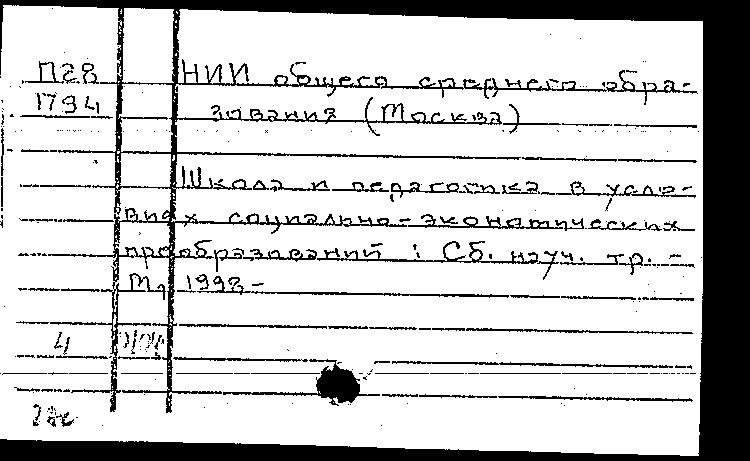 П28
1794
НИИ общего среднего обра-
зования (Москва)
Школа и педагогика в усло-
виях социально-экономических
преобразований : Сб. науч. тр. -
М, 1998-
4